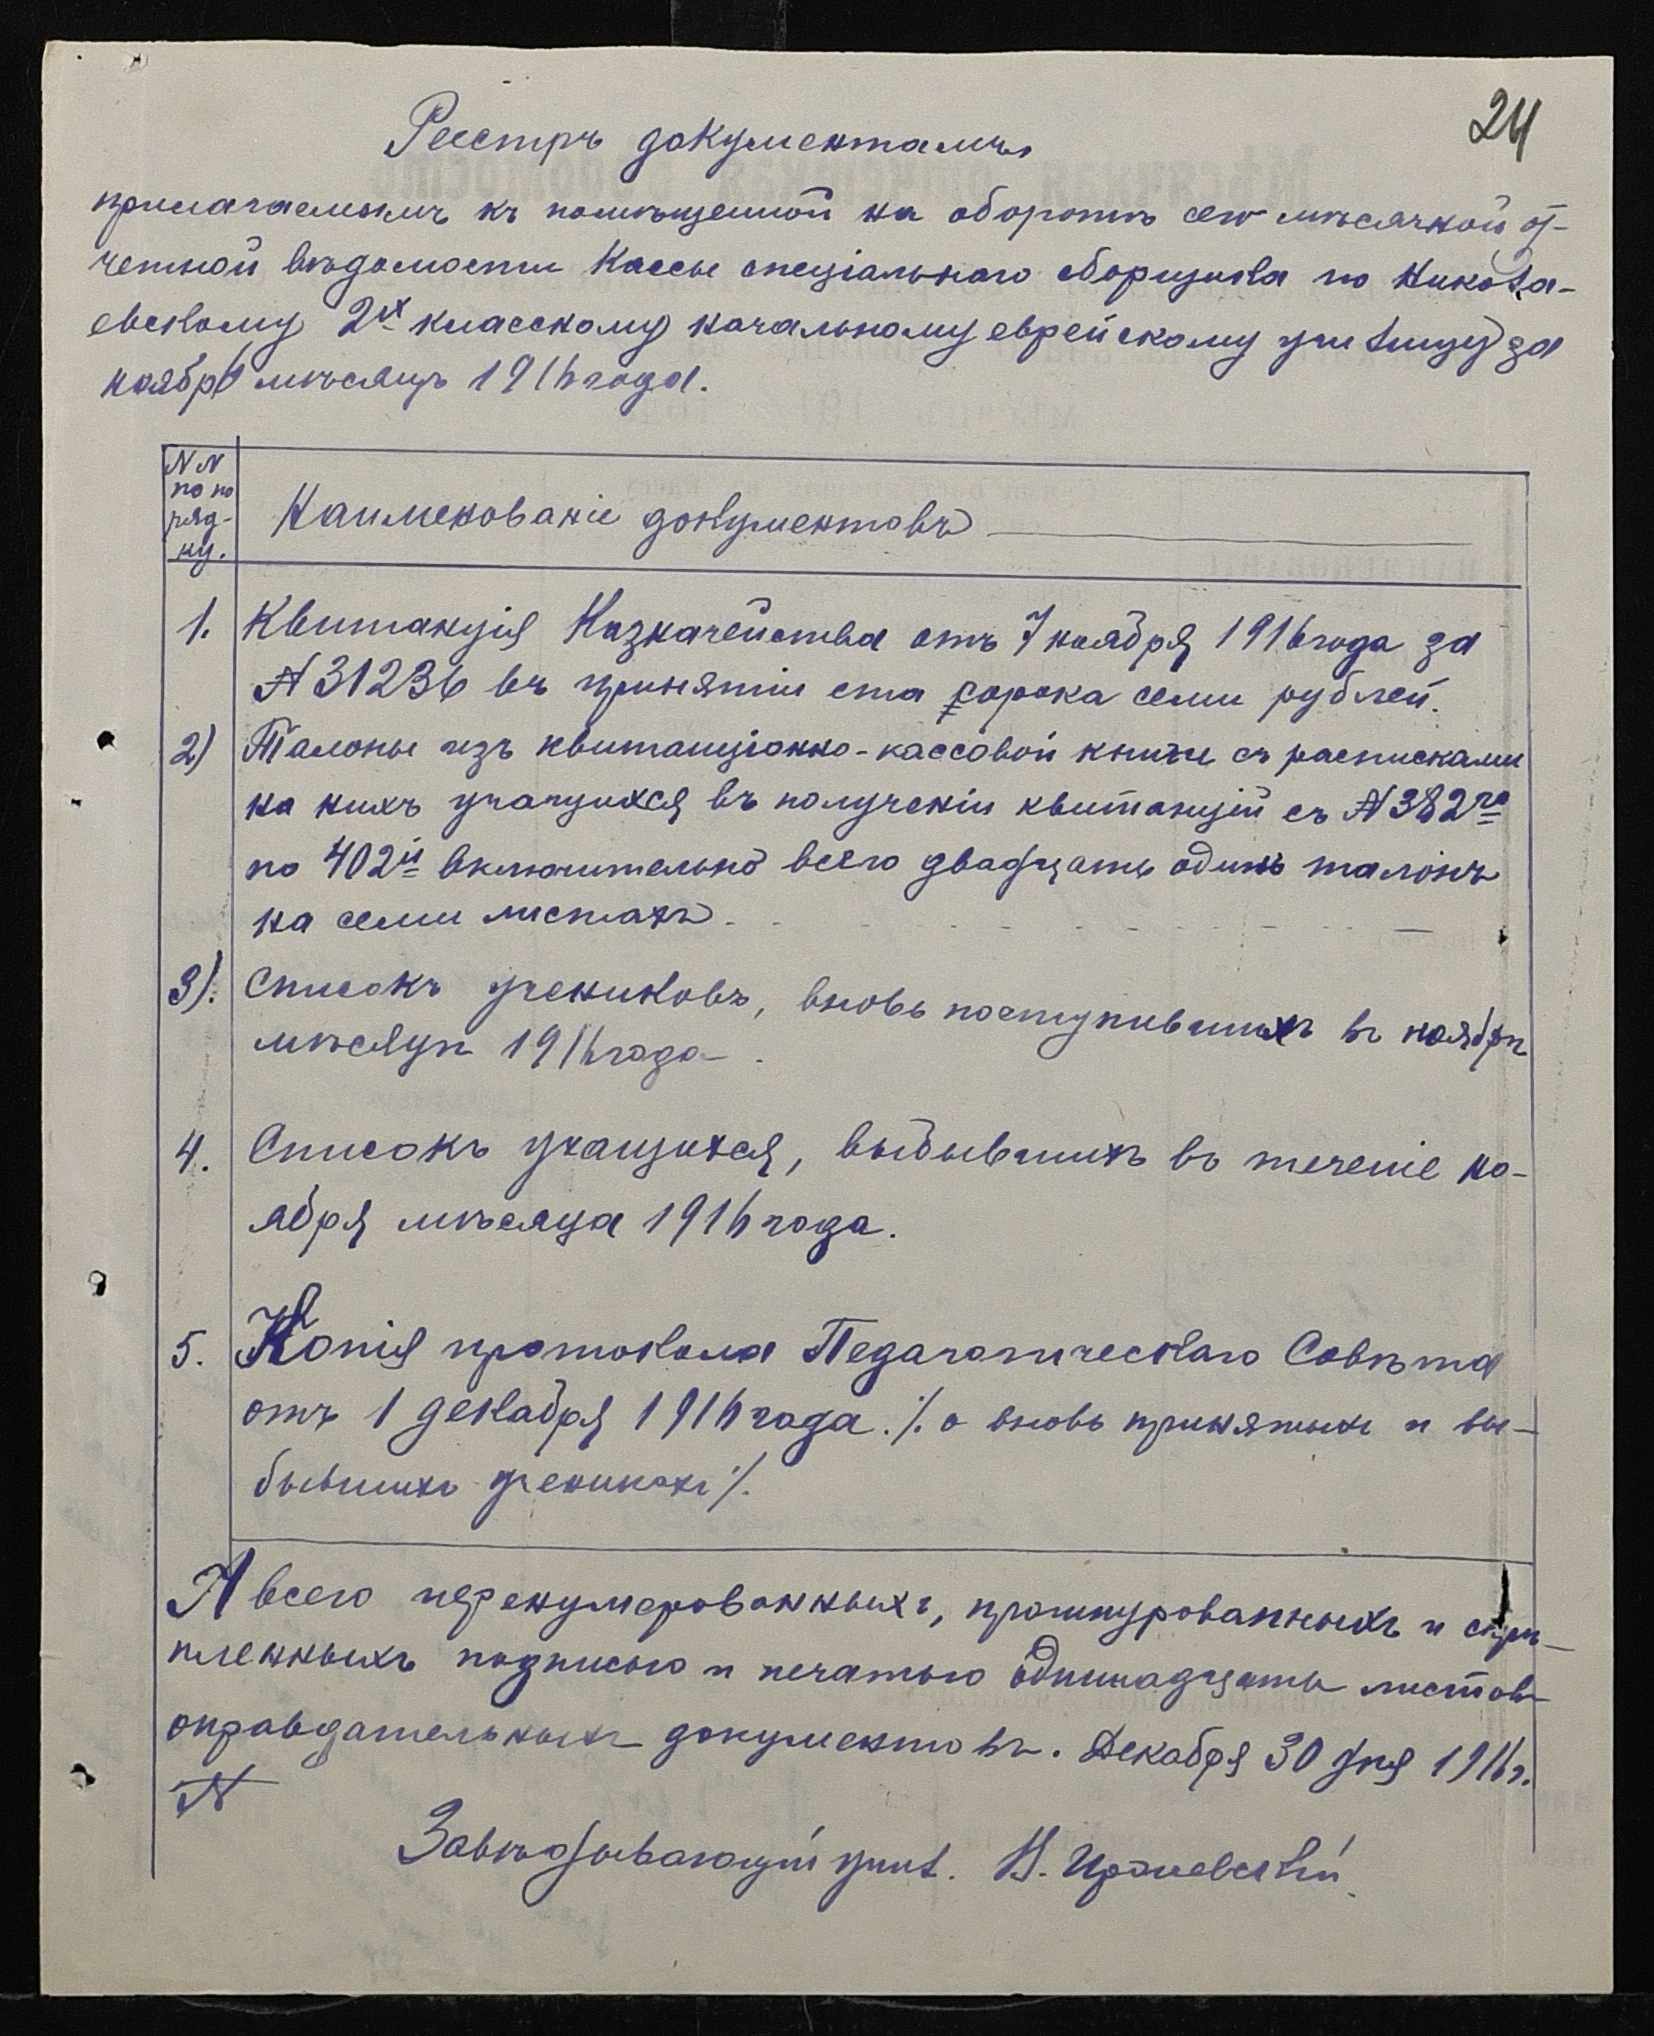 24
Реестръ документамъ
прилагаемымъ къ помѣщенной на оборотѣ сего мѣсячной от-
четной вѣдомости Кассы спеціальнаго сборщика по Никола-
евскому 2хъ классному начальному еврейскому училищу за
ноябрь мѣсяцъ 1916 года.
NN
по по
ряд-
ку.
Наименованіе документовъ
1. Квитанція Казначейства отъ 7 ноября 1916 года за
№ 31236 въ принятіи ста сорока семи рублей.
2) Талоны изъ квитанціонно-кассовой книги съ расписками
на нихъ учащихся въ полученіи квитанцій съ № 382го
по 402й включительно всего двадцать одинъ талонъ
на семи листахъ.
3). Списокъ учениковъ, вновь поступившихъ въ ноябрѣ
мѣсяцѣ 1916 года.
4. Списокъ учащихся, выбывшихъ въ теченіе но-
ября мѣсяца 1916 года.
5. Копія протокола Педагогическаго Совѣта
отъ 1 декабря 1916 года ./. о вновь принятыхъ и вы-
бывшихъ ученикахъ ./.
А всего перенумерованныхъ, прошнурованныхъ и скрѣ-
пленныхъ подписью и печатью одиннадцать листовъ
оправдательныхъ документовъ. Декабря 30 дня 1916 г.
№
Завѣдывающій учил. Н.